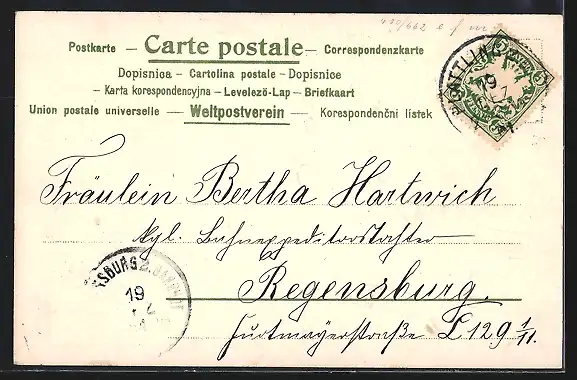 Postkarte — Carte postale — Correspondenzkarte
Dopisnica — Cartolina postale - Dopisnice
- Karta korespondencyjna — Levelező-Lap — Briefkaart
Union postale universelle — Weltpostverein — Korespondenční listek
PLATTLING
19
Fräulein Bertha Hartwich
kgl. Bahnexpeditorstochter
Regensburg.
19
E 129 1/II.